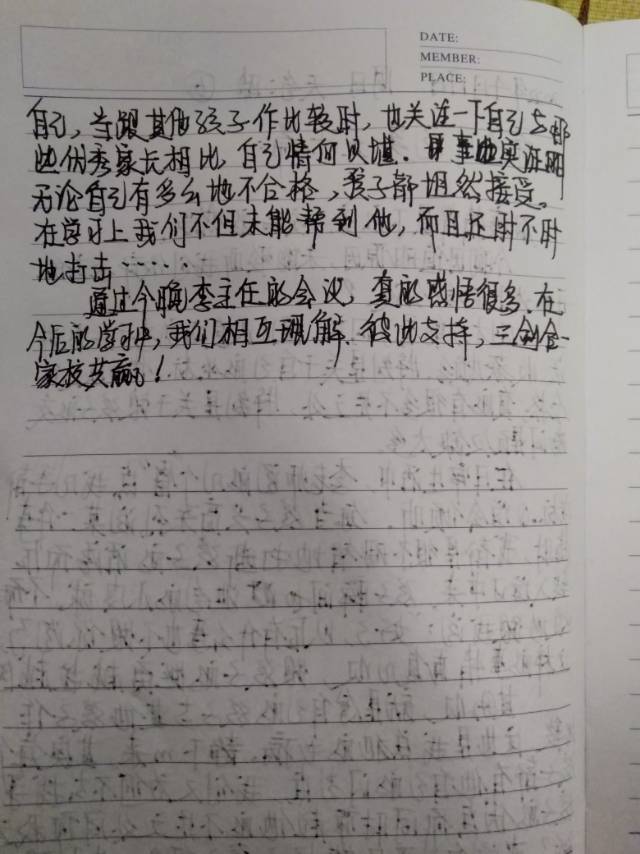 DATE:
MEMBER:
PLACE:
自己,当跟其他孩子作比较时,也关注一下自己与那
些优秀家长相比,自己情何以堪.事实证明
无论自己有多么地不合格,孩子都坦然接受。
在学习上我们不但未能帮到他,而且还时不时
地打击……
通过今晚李主任的会议,真的感悟很多.在
今后的学习中,我们相互理解.彼此支持,三剑合一
家校共赢!